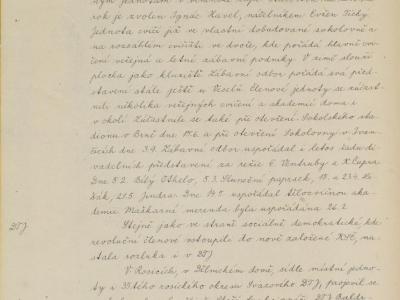 rok je zvolen Ignác Havel, náčelníkem Evžen Tichý.
Jednota cvičí již ve vlastní dobudované sokolovně a
na rozsáhlém cvičišti ve dvoře, kde pořádá hlavně cvi-
čení veřejná a letní zábavní podniky. V zimě slouží
plocha jako kluziště. Zábavní odbor pořádá svá před-
stavení stále ještě u Veselů. Členové jednoty se zúčast-
nili několika veřejných cvičení a akademií doma i
v okolí. Zúčastnili se také při otevření Sokolského sta-
dionu v Brně dne 17.6 a při otevření Sokolovny v Ivan-
čicích dne 3.9. Zábavní odbor uspořádal i letos řadu di-
vadelních představení za režie E. Ventruby a K. Čupra.
Dne 5.2. Bílý Othelo, 5.3. Sluneční paprsek, 18. a 23.4. Lv
Žák, 21.5. Jindra. Dne 14.5. uspořádal tělocvičnou aka-
demii. Maškarní merenda byla uspořádána 26.2.
DTJ Stejně jako ve straně sociálně demokratické, kde
revoluční členové vstoupili do nově založené KSČ, na-
stala rozluka i v DTJ
V Rosicích, v Dělnickém domě, sídle místní jedno-
ty a 33tého rosického okresu Svazového DTJ, projevil se